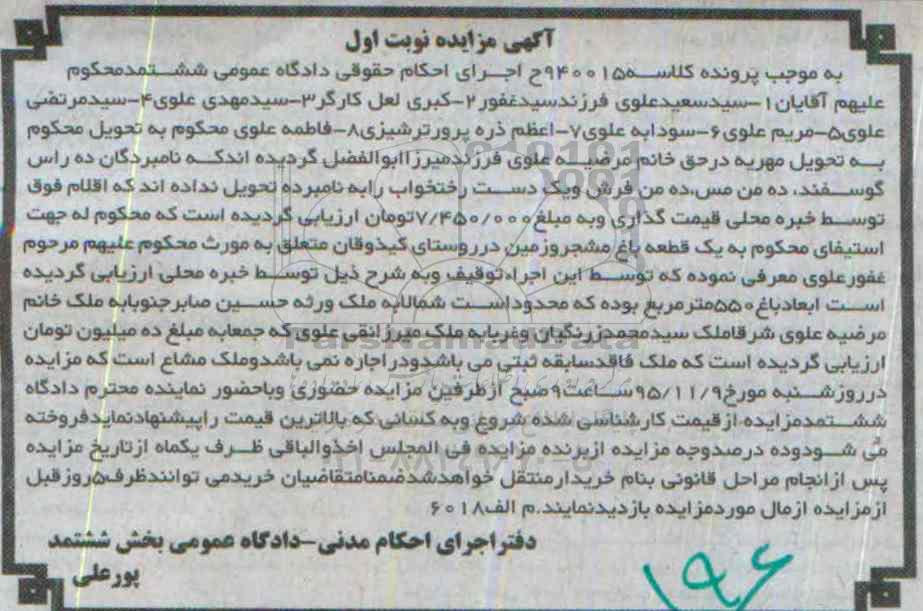 آگهی مزایده نوبت اول
به موجب پرونده کلاسه ۹۴۰۰۱۵ح اجرای احکام حقوقی دادگاه عمومی ششتمدمحکوم
علیهم آقایان۱-سیدسعیدعلوی فرزندسیدغفور۲-کبری لعل کارگر۳-سیدمهدی علوی۴-سیدمرتضی
علوی۵-مریم علوی۶-سودابه علوی۷-اعظم ذره پرورترشیزی۸-فاطمه علوی محکوم به تحویل محکوم
به تحویل مهریه درحق خانم مرضیه علوی فرزندمیرزاابوالفضل گردیده اندکه نامبردگان ده راس
گوسفند، ده من مس،ده من فرش ویک دست رختخواب رابه نامبرده تحویل نداده اند که اقلام فوق
توسط خبره محلی قیمت گذاری وبه مبلغ۷/۴۵۰/۰۰۰تومان ارزیابی گردیده است که محکوم له جهت
استیفای محکوم به یک قطعه باغ مشجروزمین درروستای کیذوقان متعلق به مورث محکوم علیهم مرحوم
غفورعلوی معرفی نموده که توسط این اجراءتوقیف وبه شرح ذیل توسط خبره محلی ارزیابی گردیده
است ابعادباغ۵۵۰مترمربع بوده که محدوداست شمالابه ملک ورثه حسین صابرجنوبابه ملک خانم
مرضیه علوی شرقاملک سیدمحمدزرنگیان وغربابه ملک میرزانقی علوی که جمعابه مبلغ ده میلیون تومان
ارزیابی گردیده است که ملک فاقدسابقه ثبتی می باشدودراجاره نمی باشدوملک مشاع است که مزایده
درروزشنبه مورخ۹۵/۱۱/۹ساعت۹صبح ازطرفین مزایده حضوری وباحضور نماینده محترم دادگاه
ششتمدمزایده ازقیمت کارشناسی شده شروع وبه کسانی که بالاترین قیمت راپیشنهادنمایدفروخته
می شودوده درصدوجه مزایده ازبرنده مزایده فی المجلس اخذوالباقی ظرف یکماه ازتاریخ مزایده
پس ازانجام مراحل قانونی بنام خریدارمنتقل خواهدشدضمنامتقاضیان خریدمی توانندظرف۵روزقبل
ازمزایده ازمال موردمزایده بازدیدنمایند.م الف۶۰۱۸
دفتراجرای احکام مدنی-دادگاه عمومی بخش ششتمد
پورعلی
۱۹۶